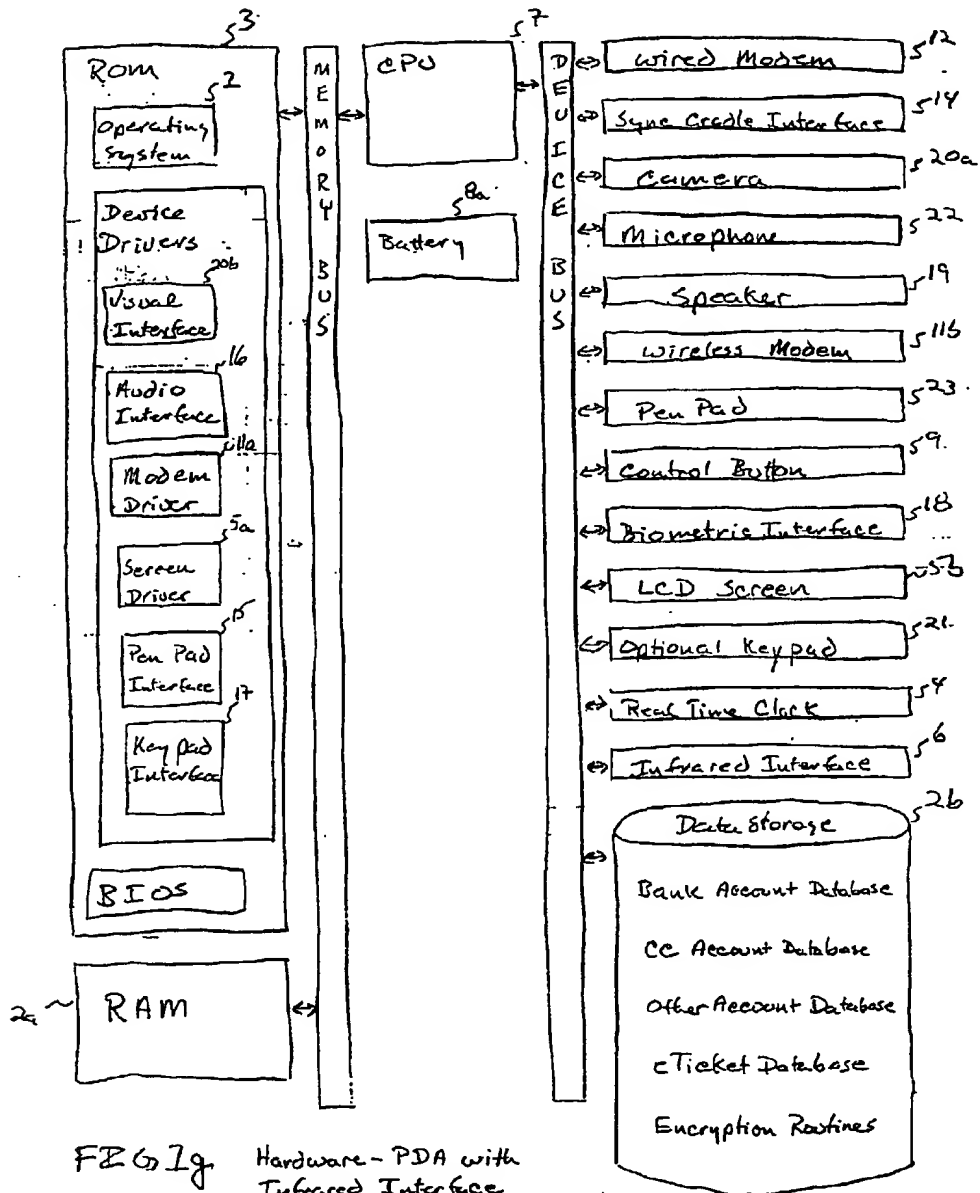 3
ROM
2
Operating
System
Device
Drivers
20b
Visual
Interface
16
Audio
Interface
11a
Modem
Driver
5a
Screen
Driver
15
Pen Pad
Interface
17
Keypad
Interface
BIOS
2a
RAM
MEMORY BUS
7
CPU
8a
Battery
DEVICE BUS
12
Wired Modem
14
Sync Cradle Interface
20a
Camera
22
Microphone
19
Speaker
11b
Wireless Modem
23
Pen Pad
9
Control Button
18
Biometric Interface
5b
LCD Screen
21
Optional Keypad
4
Real Time Clock
6
Infrared Interface
2b
Data Storage
Bank Account Database
CC Account Database
Other Account Database
eTicket Database
Encryption Routines
FIG 1g
Hardware - PDA with
Infrared Interface